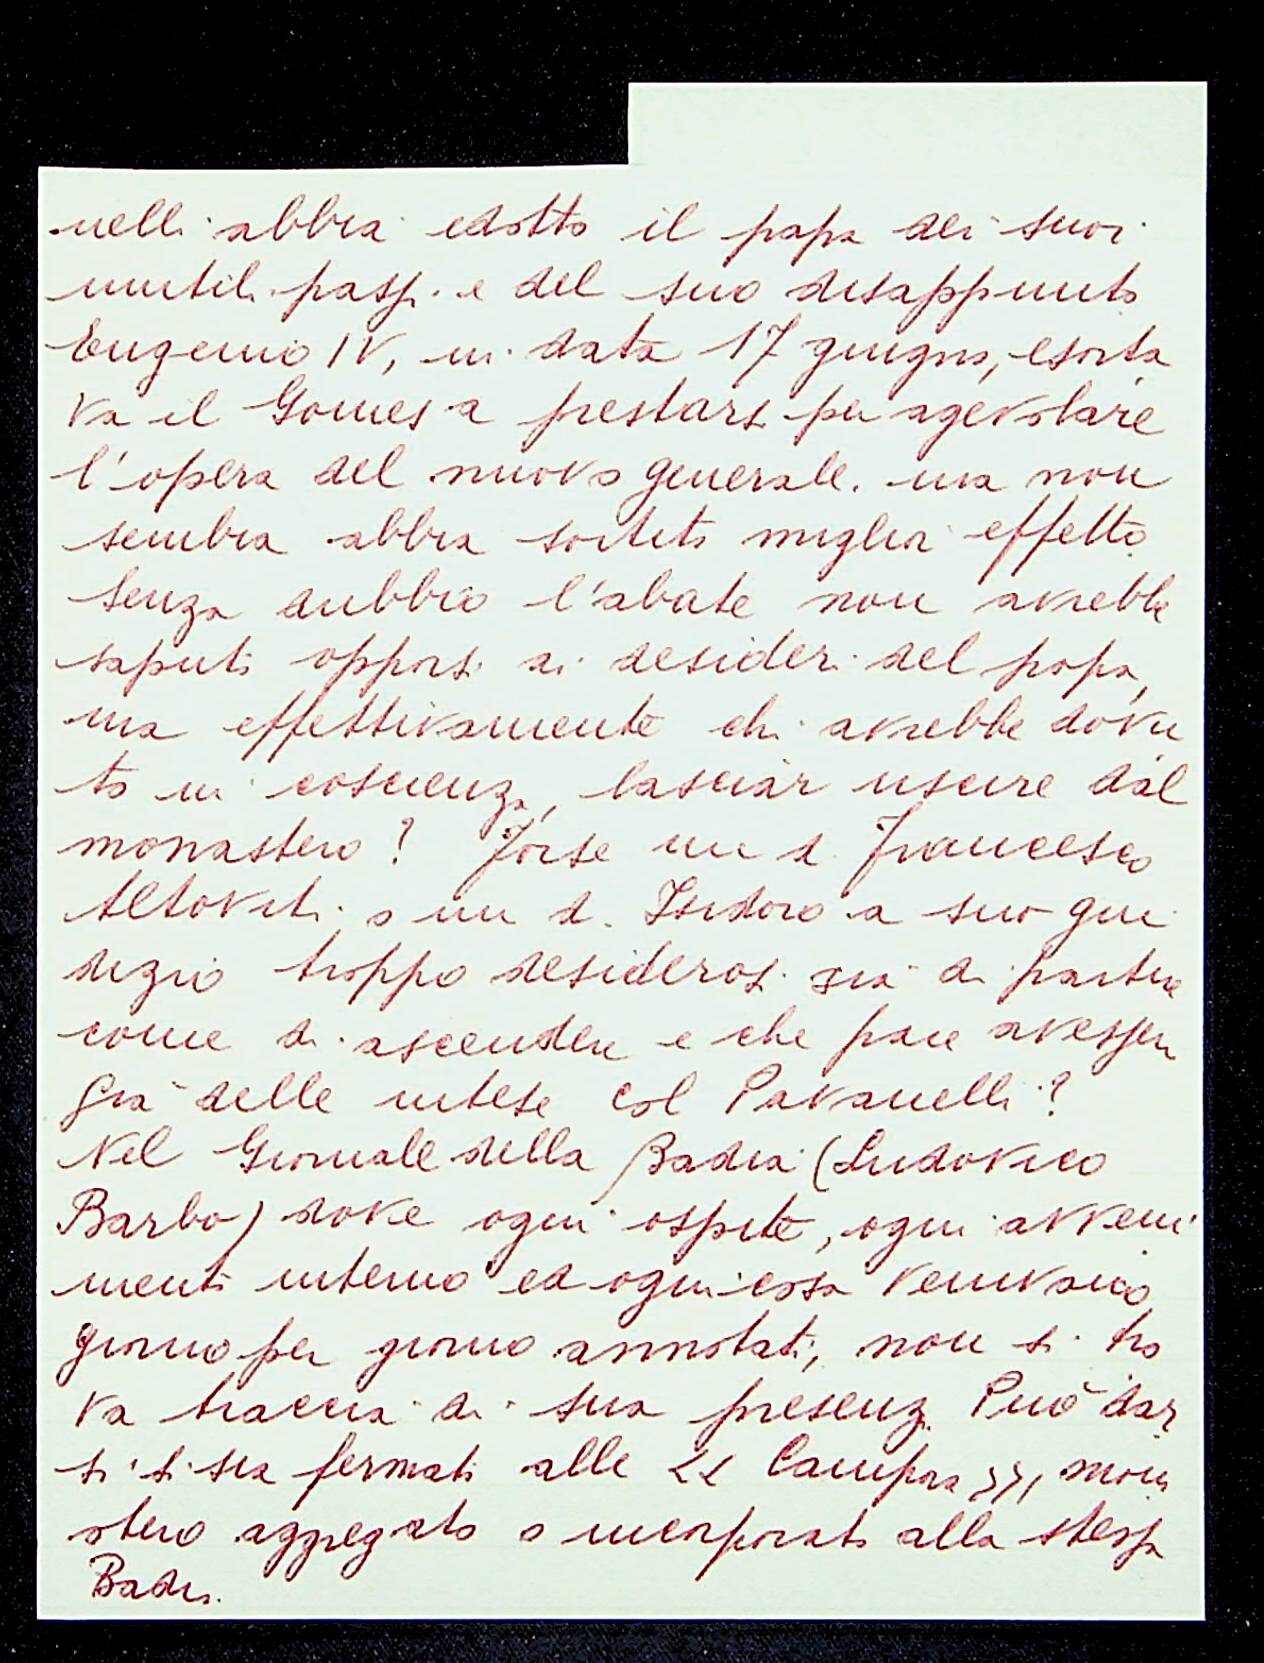 nelli abbia edotto il papa dei suoi
inutili passi e del suo disappunto
Eugenio IV, in data 17 giugno, esorta
va il Gomes a prestarsi per agevolare
l'opera del nuovo generale. ma non
sembra abbia sortito miglior effetto
Senza dubbio l'abate non avrebbe
saputo opporsi ai desideri del papa,
ma effettivamente chi avrebbe dovu
to in coscienza, lasciar uscire dal
monastero? Forse un d. Francesco
Altoviti o un d. Isidoro a suo giu
dizio troppo desiderosi sia di partire
come di ascendere e che pare avessero
già delle intese col Pavanelli?
Nel Giornale della Badia (Ludovico
Barbo) dove ogni ospite, ogni avveni
mento interno ed ogni cosa venivano
giorno per giorno annotati, non si tro
va traccia di sua presenza Può dar
si si sia fermato alle << Campora >>, mona
stero aggregato o incorporato alla stessa
Badia.